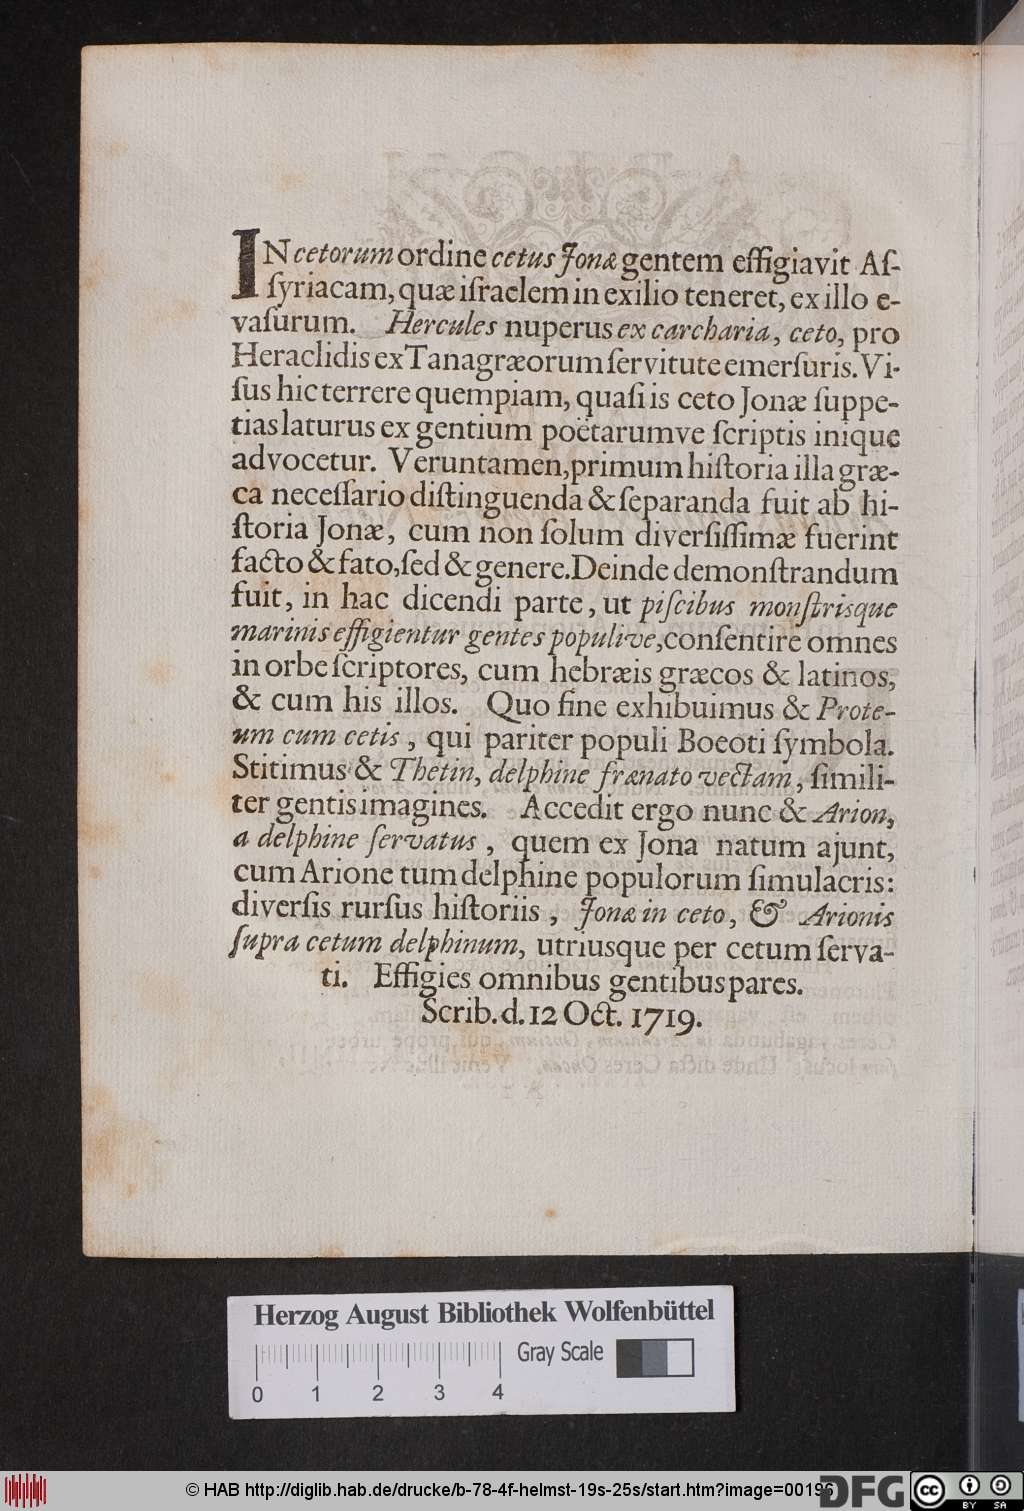 IN cetorum ordine cetus Jonæ gentem effigiavit Aſ-
ſyriacam, quæ iſraelem in exilio teneret, ex illo e-
vaſurum. Hercules nuperus ex carcharia, ceto, pro
Heraclidis ex Tanagræorum ſervitute emerſuris. Vi-
ſus hic terrere quempiam, quaſi is ceto Jonæ ſuppe-
tias laturus ex gentium poëtarumve ſcriptis inique
advocetur. Veruntamen, primum hiſtoria illa græ-
ca neceſſario diſtinguenda & ſeparanda fuit ab hi-
ſtoria Jonæ, cum non ſolum diverſiſſimæ fuerint
facto & fato, ſed & genere. Deinde demonſtrandum
fuit, in hac dicendi parte, ut piſcibus monſtrisque
marinis effigientur gentes populive, conſentire omnes
in orbe ſcriptores, cum hebræis græcos & latinos,
& cum his illos. Quo fine exhibuimus & Prote-
um cum cetis, qui pariter populi Boeoti ſymbola.
Stitimus & Thetin, delphine frænato vectam, ſimili-
ter gentis imagines. Accedit ergo nunc & Arion,
a delphine ſervatus, quem ex Jona natum ajunt,
cum Arione tum delphine populorum ſimulacris:
diverſis rurſus hiſtoriis, Jonæ in ceto, & Arionis
ſupra cetum delphinum, utriusque per cetum ſerva-
ti. Effigies omnibus gentibus pares.
Scrib. d. 12 Oct. 1719.
Herzog August Bibliothek Wolfenbüttel
Gray Scale
0 1 2 3 4
© HAB http://diglib.hab.de/drucke/b-78-4f-helmst-19s-25s/start.htm?image=00196
DFG
cc BY SA